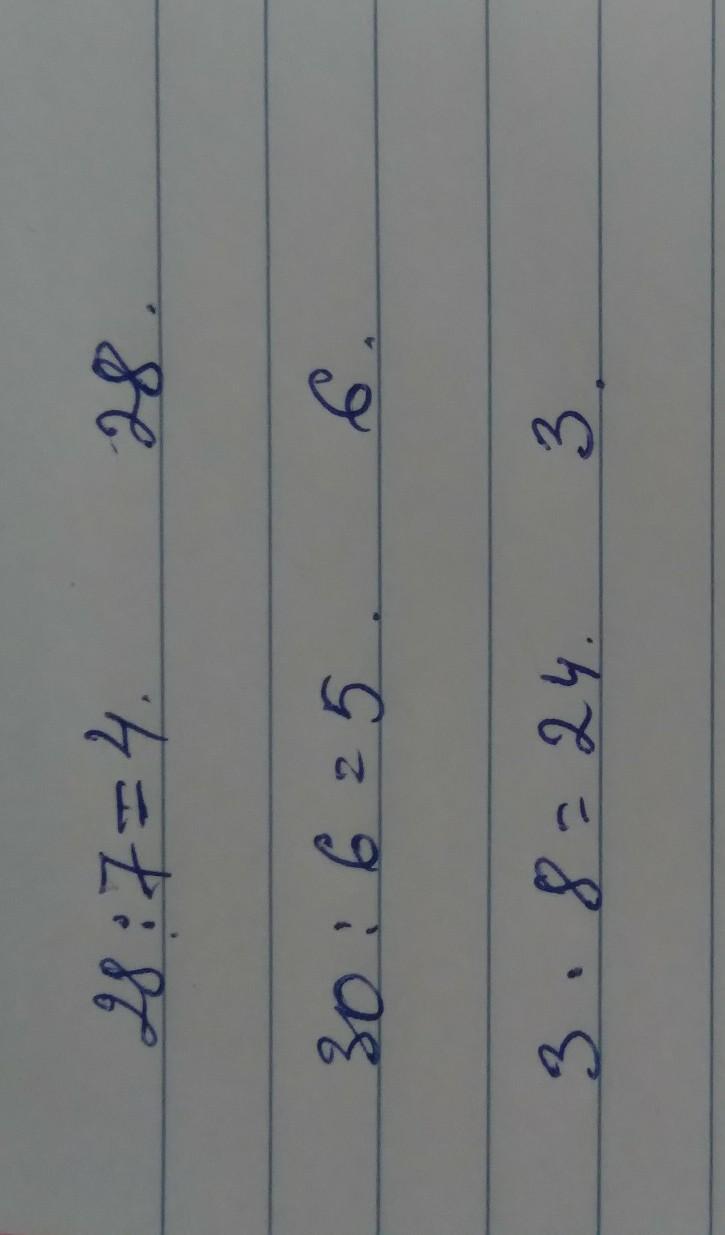 28 : 7 = 4. 28.
30 : 6 = 5. 6.
3 · 8 = 24. 3.